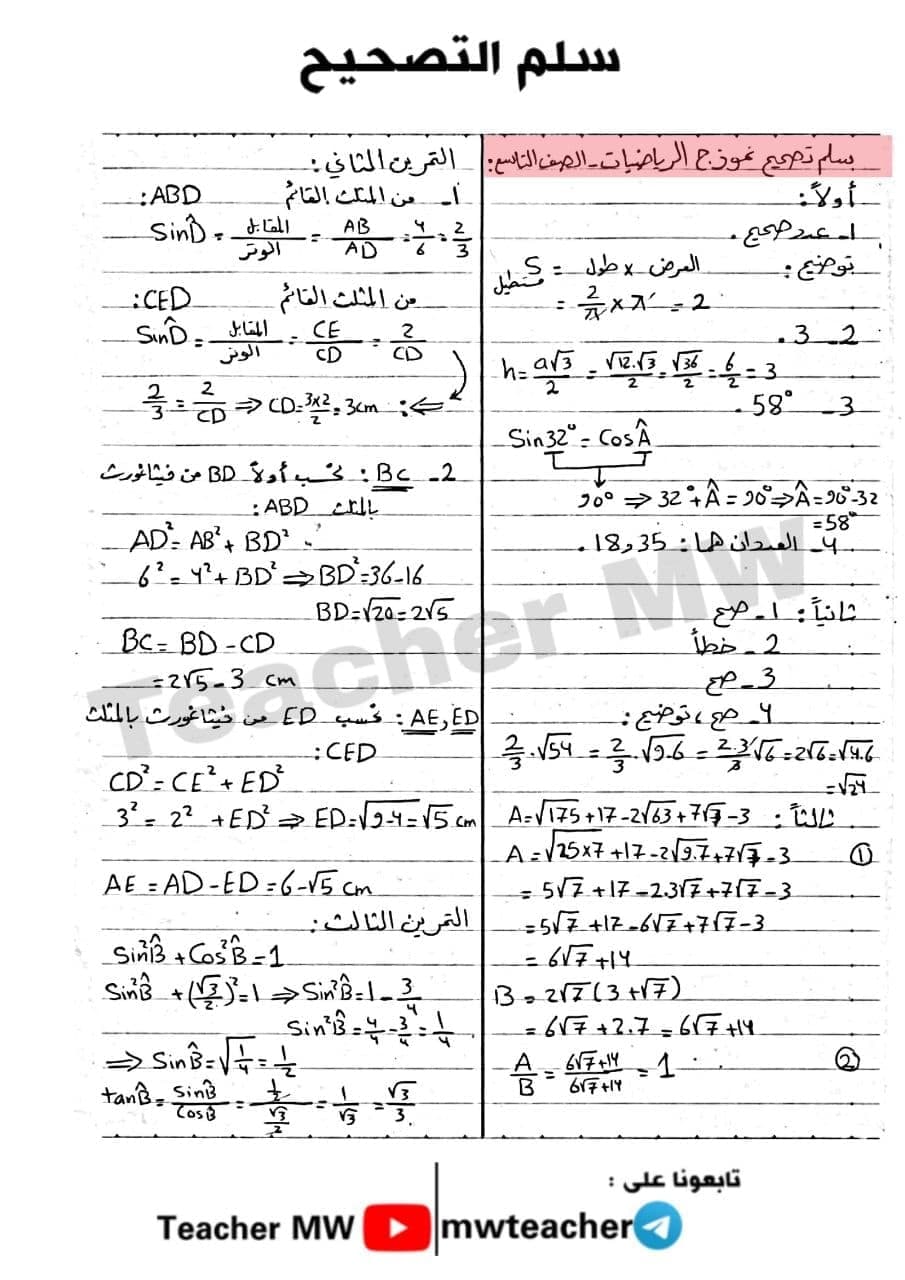 سلم التصحيح
سلم تصحيح نموذج الرياضيات - الصف التاسع:
أولاً:
1- عدد صحيح.
توضيح: العرض × طول = S مستطيل
= 2/π × π = 2
2- 3.
h = a√3/2 = √12.√3/2 = √36/2 = 6/2 = 3
3- 58°.
Sin32° = CosÂ
90° ⇒ 32°+Â = 90° ⇒ Â = 90°-32
=58°
4- العددان هما: 18,35.
ثانياً: 1- صح
2- خطأ
3- صح
4- صح، توضيح:
2/3.√54 = 2/3.√9.6 = 2.3/3√6 = 2√6 = √4.6
=√24
ثالثاً: A=√175+17-2√63+7√7-3
① A=√25×7+17-2√9.7+7√7-3
= 5√7+17-2.3√7+7√7-3
=5√7+17-6√7+7√7-3
= 6√7+14
B = 2√7(3+√7)
= 6√7+2.7 = 6√7+14
② A/B = 6√7+14/6√7+14 = 1
التمرين الثاني:
1- من المثلث القائم ABD:
SinD̂ = المقابل/الوتر = AB/AD = 4/6 = 2/3
من المثلث القائم CED:
SinD̂ = المقابل/الوتر = CE/CD = 2/CD
⇐: 2/3 = 2/CD ⇒ CD = 3×2/2 = 3cm
2- BC: نحسب أولاً BD من فيثاغورث
بالمثلث ABD:
AD² = AB² + BD²
6² = 4² + BD² ⇒ BD² = 36-16
BD=√20=2√5
BC = BD - CD
= 2√5 - 3 cm
AE, ED: نحسب ED من فيثاغورث بالمثلث
CED:
CD² = CE² + ED²
3² = 2² + ED² ⇒ ED = √9-4 = √5 cm
AE = AD - ED = 6-√5 cm
التمرين الثالث:
Sin²B̂ + Cos²B̂ = 1
Sin²B̂ + (√3/2)² = 1 ⇒ Sin²B̂ = 1 - 3/4
Sin²B̂ = 4/4 - 3/4 = 1/4
⇒ SinB̂ = √1/4 = 1/2
tanB̂ = SinB̂/CosB̂ = 1/2/√3/2 = 1/√3 = √3/3.
Teacher MW
تابعونا على :
Teacher MW mwteacher